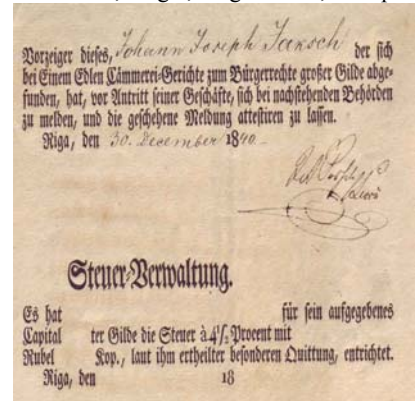 Vorzeiger dieses, Johann Joseph Jaksch der sich
bei Einem Edlen Cämmerei-Gerichte zum Bürgerrechte großer Gilde abge-
funden, hat, vor Antritt seiner Geschäfte, sich bei nachstehenden Behörden
zu melden, und die geschehene Meldung attestiren zu lassen.
Riga, den 30. December 1840.
Steuer-Verwaltung.
Es hat für sein aufgegebenes
Capital ter Gilde die Steuer à 4½ Procent mit
Rubel Kop., laut ihm ertheilter besonderen Quittung, entrichtet.
Riga, den 18